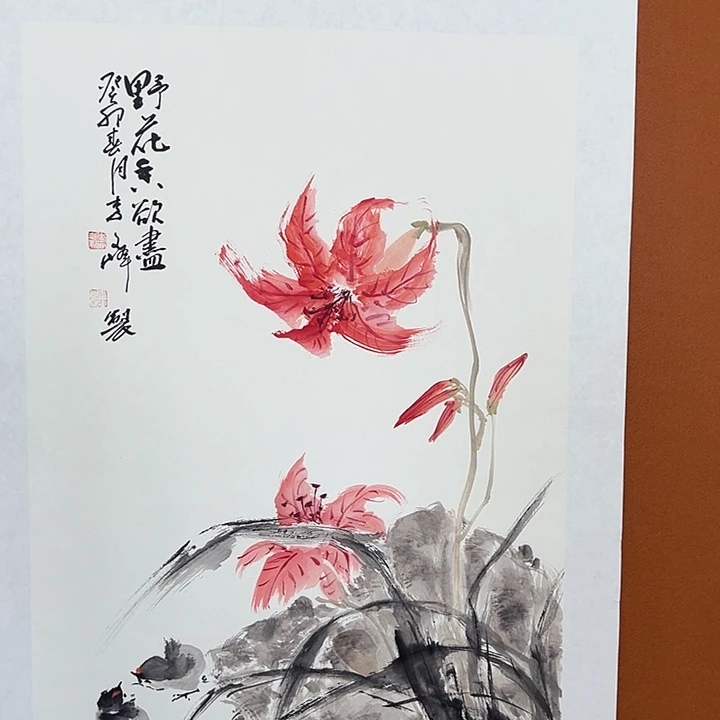 野花香欲盡
癸卯春月李峰製